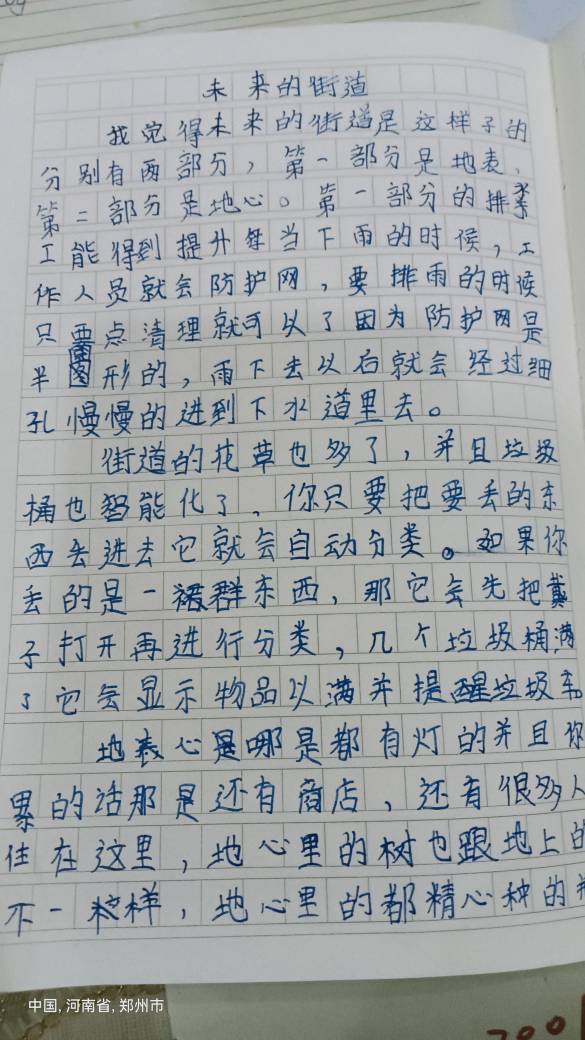 未来的街道
我觉得未来的街道是这样子的
分别有两部分，第一部分是地表、
第二部分是地心。第一部分的排
工能得到提升每当下雨的时候，工
作人员就会防护网，要排雨的时候
只要点清理就可以了因为防护网是
半圆形的，雨下去以后就会经过细
孔慢慢的进到下水道里去。
街道的花草也多了，并且垃圾
桶也智能化了，你只要把要丢的东
西丢进去它就会自动分类。如果你
丢的是一群东西，那它会先把
子打开再进行分类，几个垃圾桶满
了它会显示物品以满并提醒垃圾车
地表心是哪是都有灯的并且你
累的话那是还有商店，还有很多人
住在这里，地心里的树也跟地上的
不一样，地心里的都精心种的并
中国,河南省,郑州市